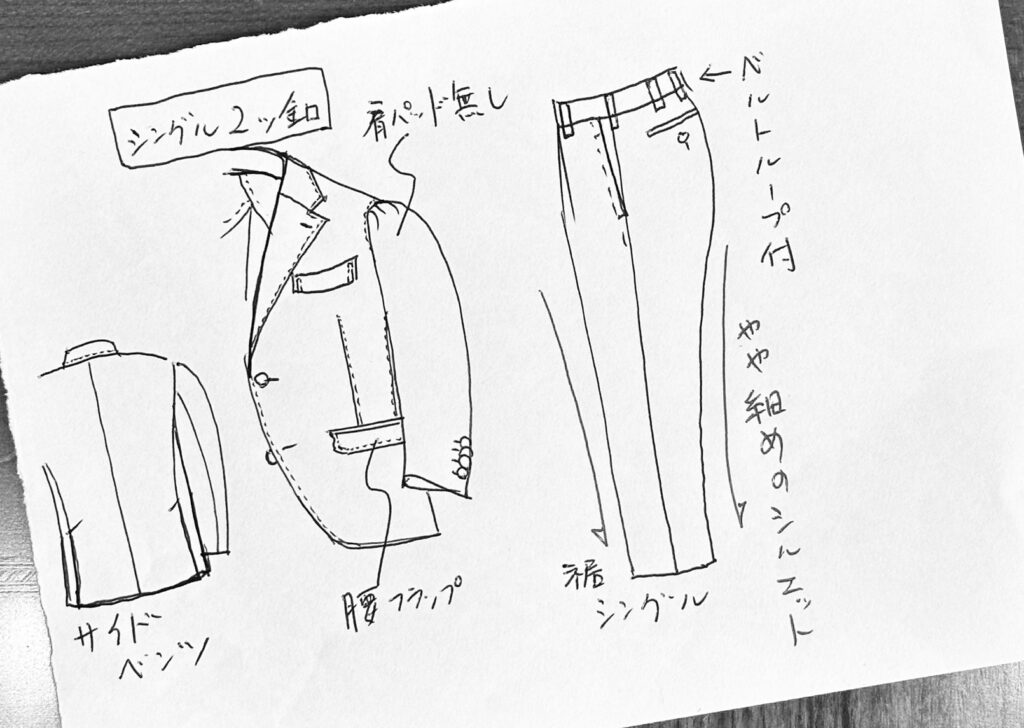 シングル2ツ釦
肩パッド無し
ベルトループ付
やや細めのシルエット
サイド
ベンツ
腰フラップ
裾
シングル